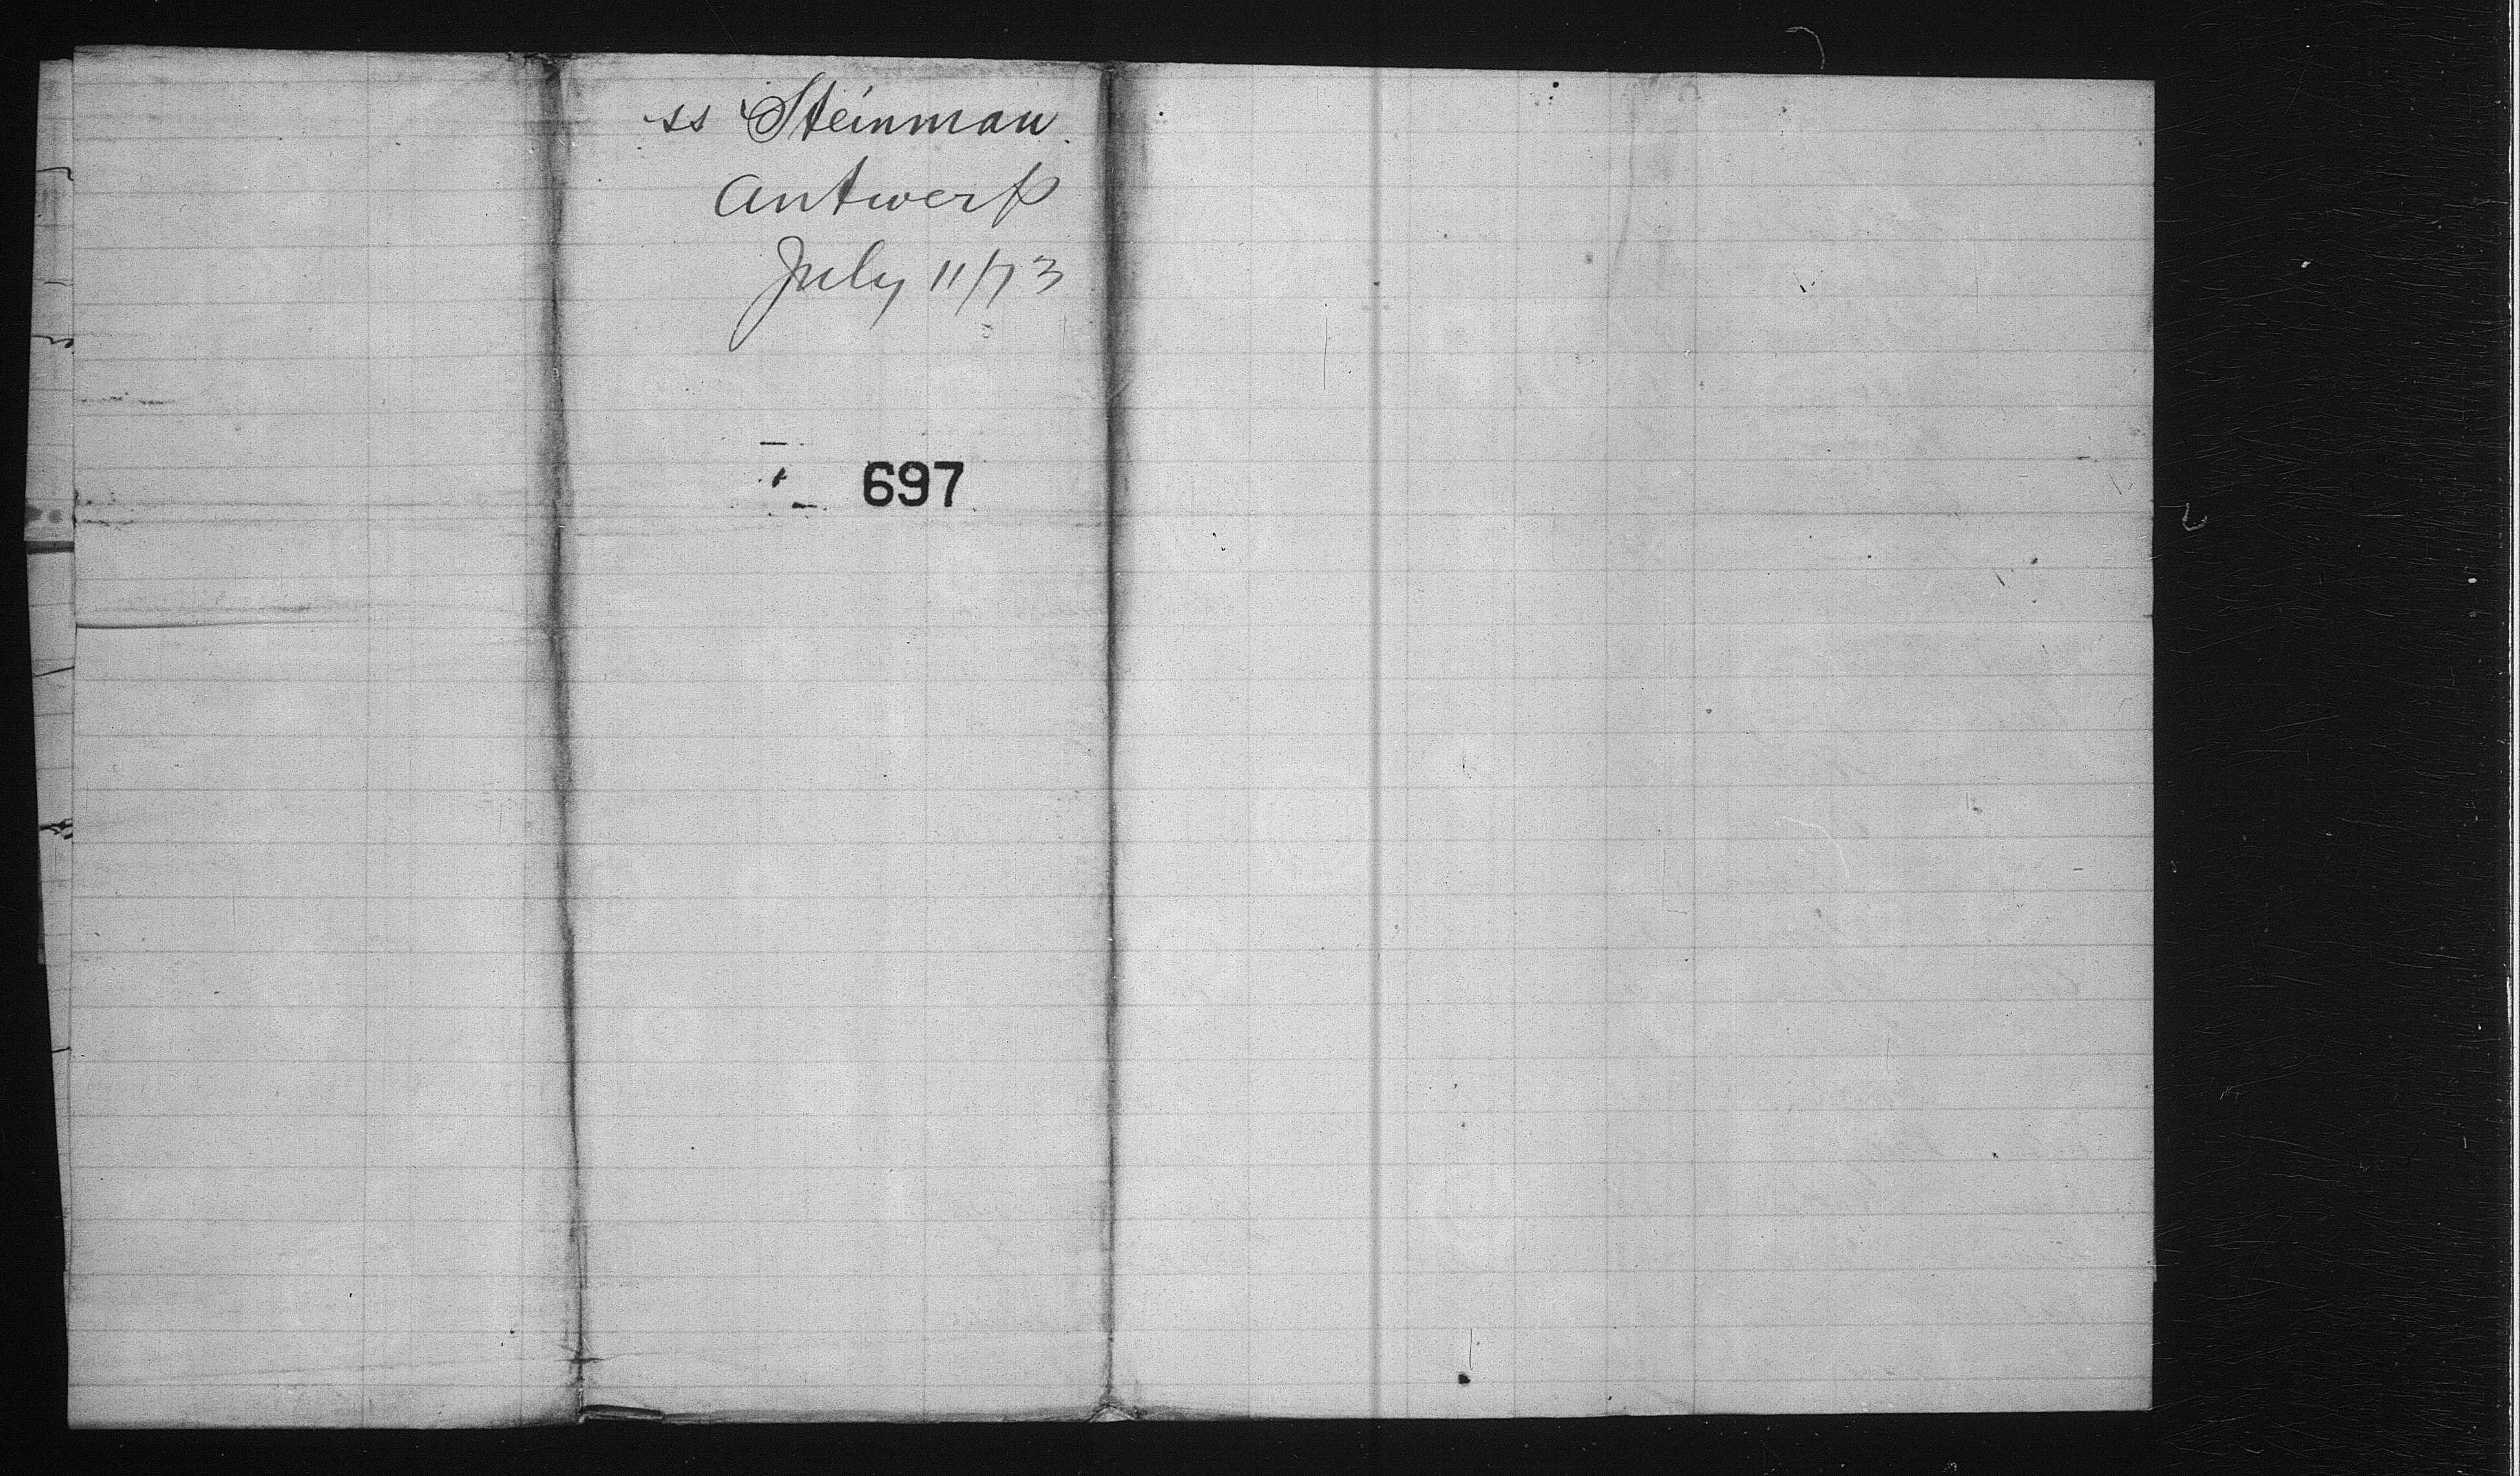 ss Steinman
Antwerp
July 11/73
697